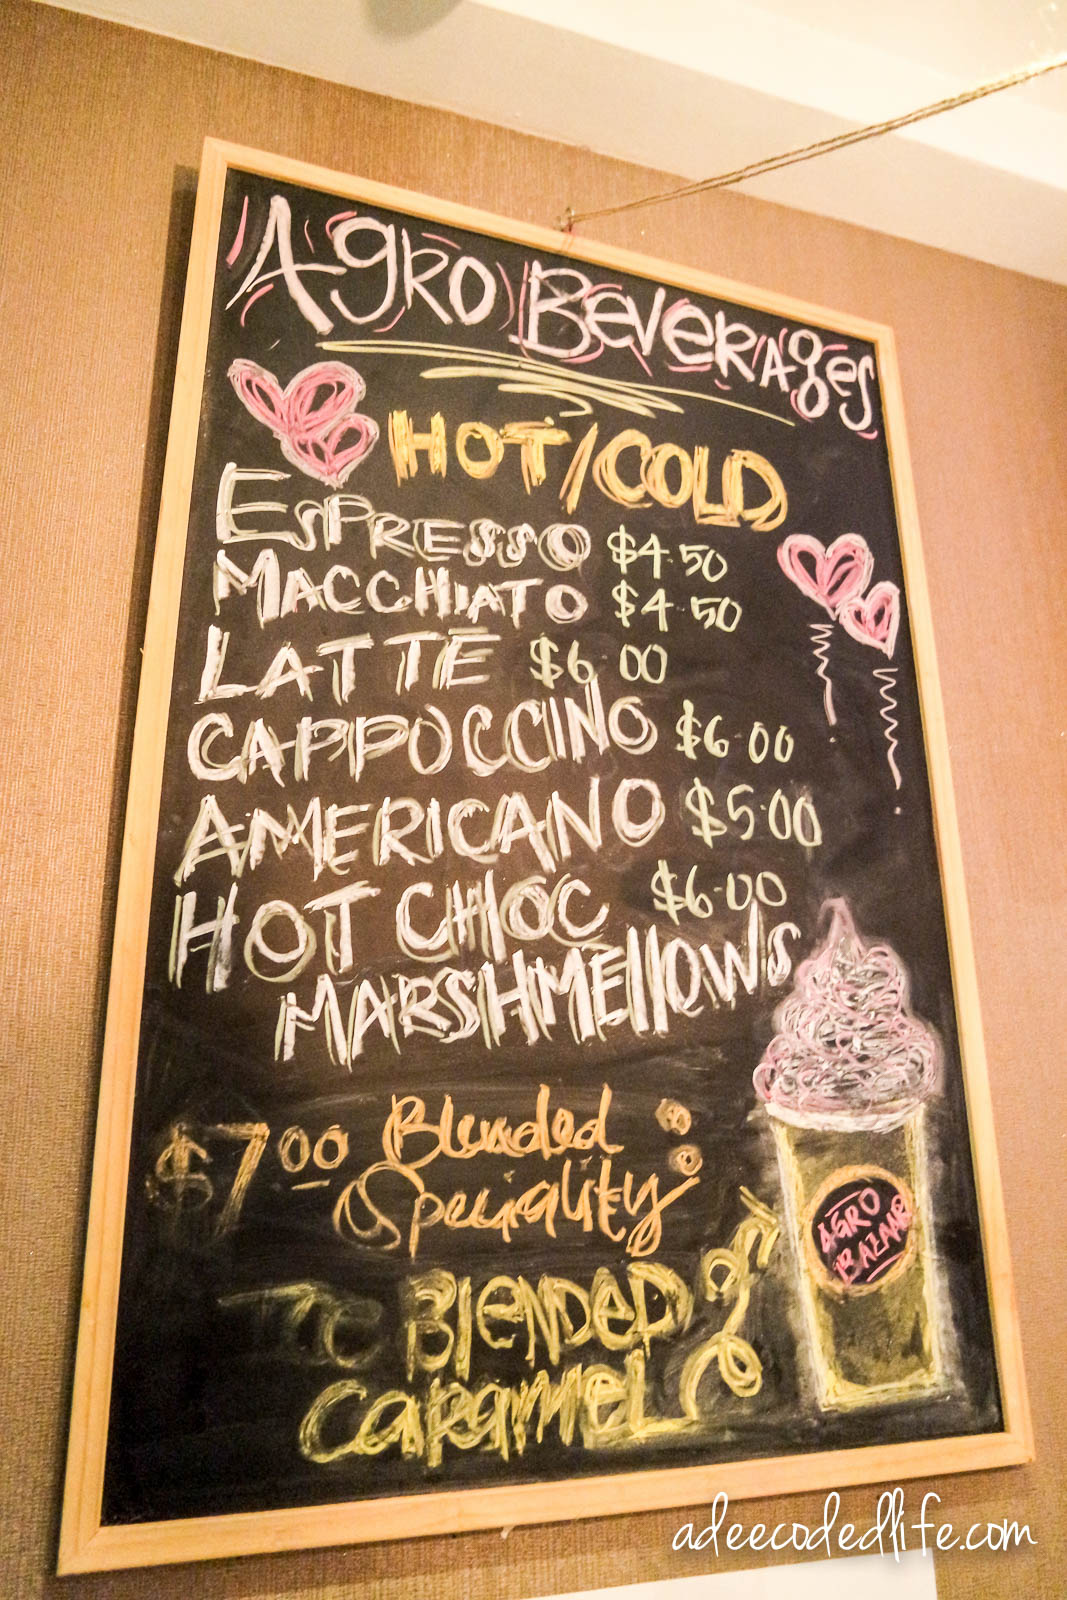 AgRO BeveRAges
HOT/COLD
EsPRESSO $4.50
MACCHIATO $4.50
LATTE $6.00
CAPPOCCINO $6.00
AMERICANO $5.00
HOT CHOC $6.00
MARSHMEllOWS
$7.00 Blended
Speciality:
BLENDED
CARAMEL
AGRO
BAZAAR
adeecodedlife.com